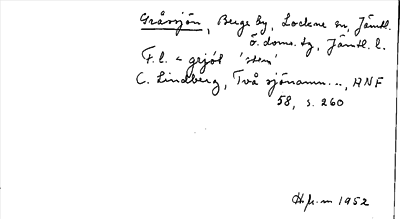 Gråsjön, Berge by, Lockne sn, Jämtl.
ö. doms. tg, Jämtl. l.
F.l. < grjót 'sten'
C. Lindberg, Två sjönamn..., ANF
58, s. 260
1952